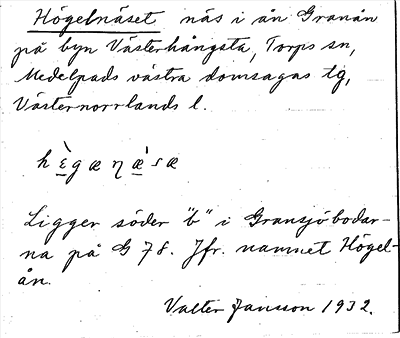 Högelnäset näs i ån Granån
på byn Västerhångsta, Torps sn,
Medelpads västra domsagas tg,
Västernorrlands l.
hɛ̀gæŋæ̀sæ
Ligger söder "b" i Gransjöbodar-
na på G 78. Jfr. namnet Högel-
ån.
Valter Jansson 1932.